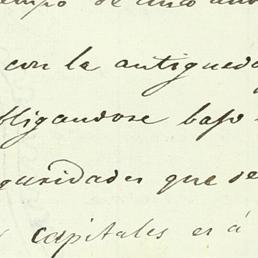 con la antigueda
bligandose bajo
guridades que se
capitales es á